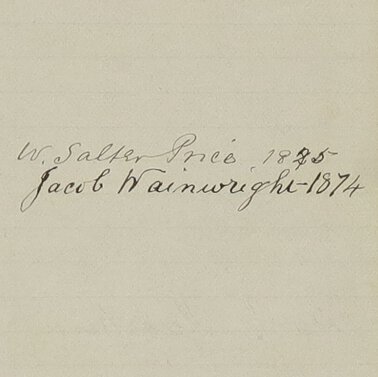 W. Salter Price 1875
Jacob Wainwright-1874